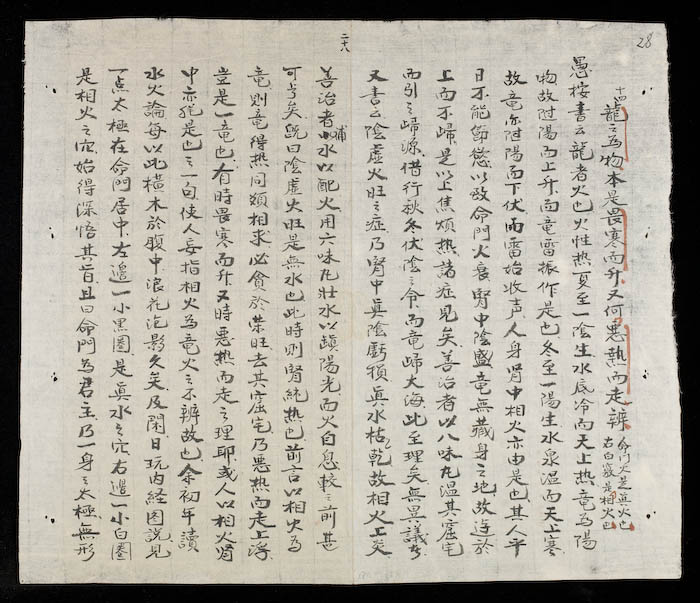 28
十四
龍之為物本是畏寒而升又何惡熱而走辨 命門火是眞火也
右白竅是相火也
愚按書云龍者火也火性热夏至一陰生水底冷而天上热竜為陽
物故附陽而上升而竜雷振作是也冬至一陽生水泉温而天上寒
故竜亦附陽而下伏而雷始收声人身肾中相火亦由是也其人平
日不能節慾以致命門火衰肾中陰盛竜無藏身之地故遊於
上而不歸是以上焦煩热諸症見矣善治者以八味丸温其窟宅
而引之歸源借行秋冬伏陰之令而竜歸大海此至理矣無異議
又書云陰虚火旺之症乃肾中眞陰虧損眞水枯乾故相火上炎
二十八
善治者補水以配火用六味丸壯水以鎮陽光而火自息較之前甚
可考矣既曰陰虚火旺是無水也此時則肾純热也前言以相火為
竜則竜得热同類相求必貪於荣旺去其窟宅乃惡热而走上浮
豈是一竜也有時畏寒而升又時惡热而走之理耶或人以相火肾
中亦是也之一句使人妄指相火為竜火之不辨故也余初年讀
水火論每以此橫木於腹中浪花泡影久矣及閑日玩内経图説見
一点太極在命門居中左邉一小黑圈是眞水之穴右邉一小白圈
是相火之穴始得深悟其旨且曰命門為君主乃一身之太極無形